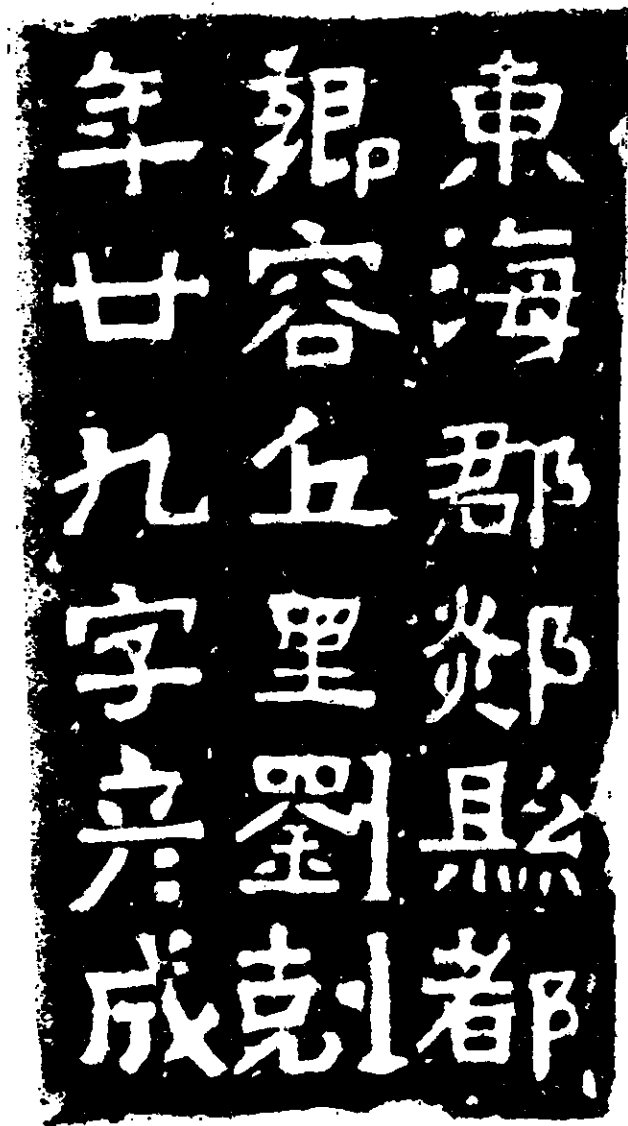 東海郡郯縣都
鄉容丘里劉剋
年廿九字彥成